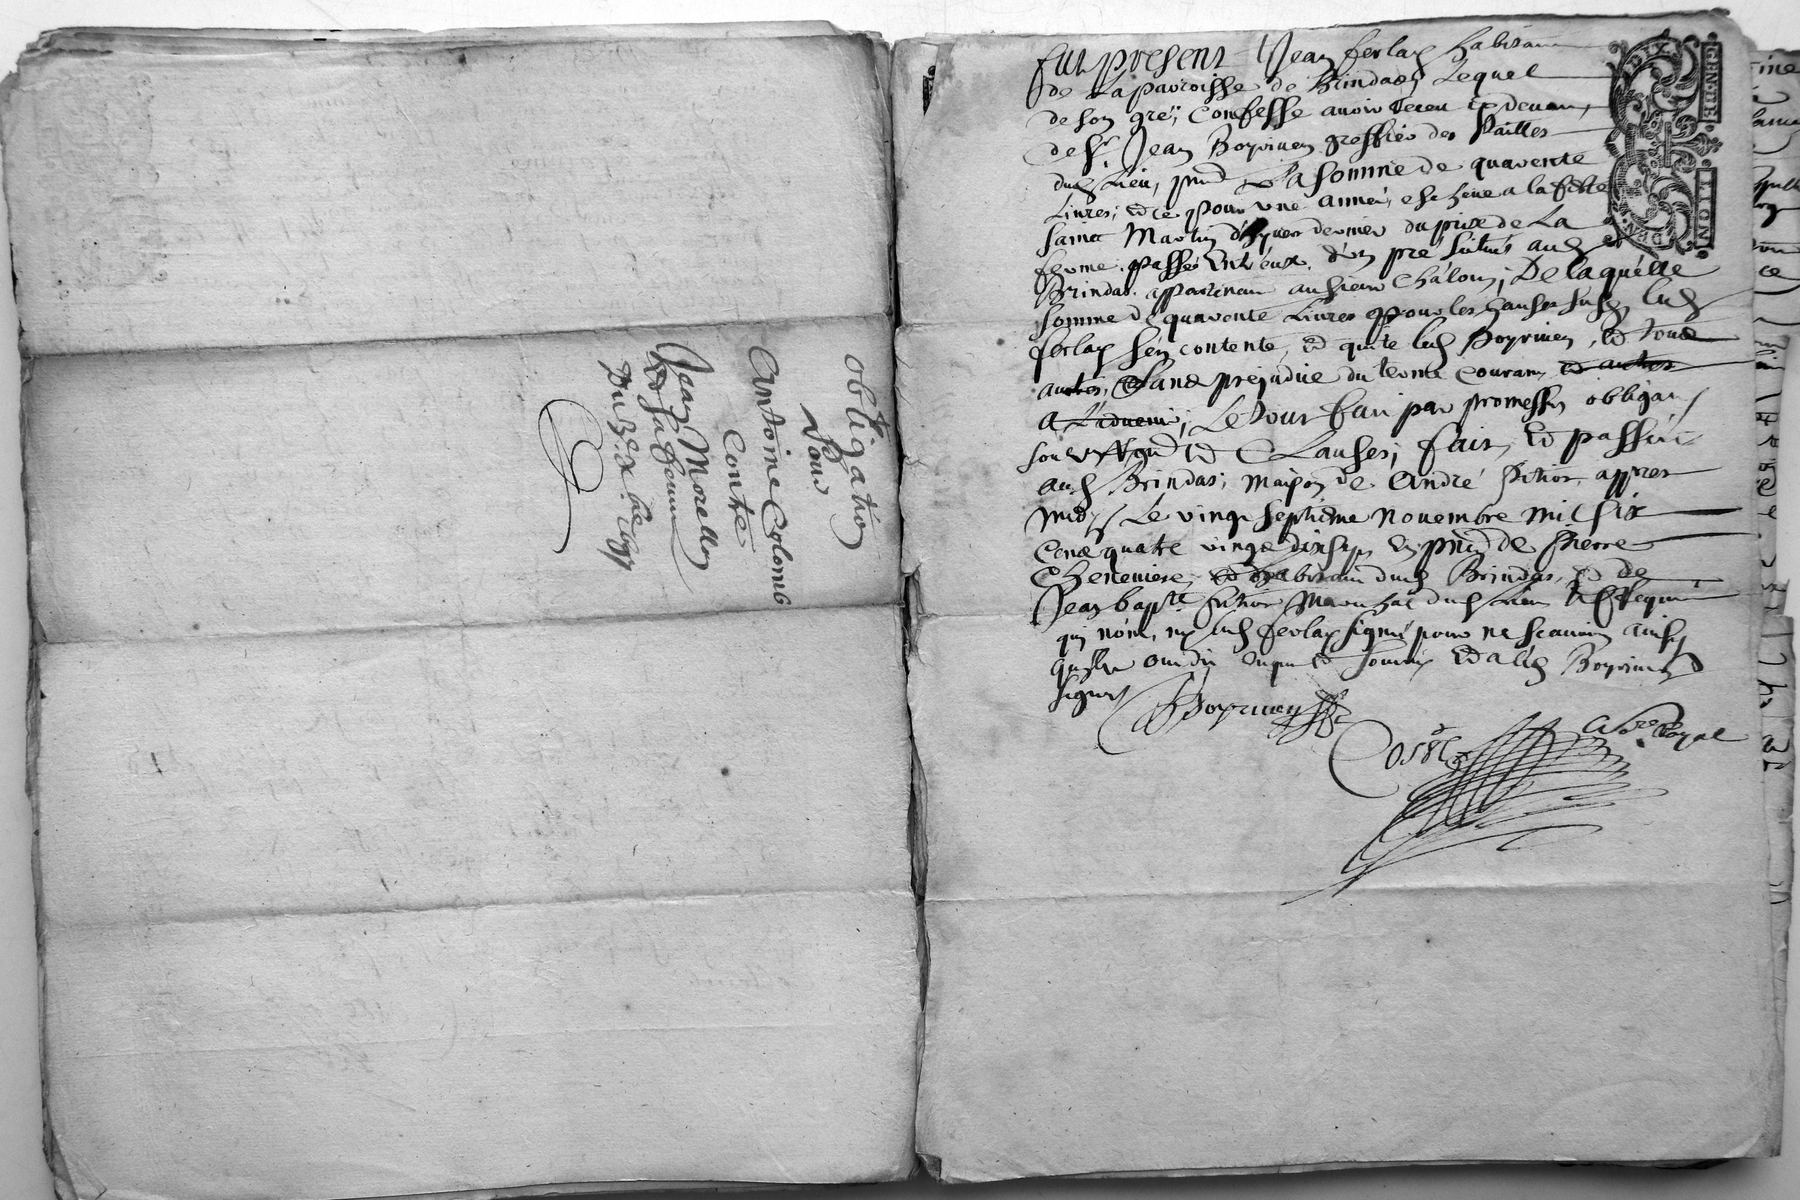 obligation
Pour
Antoine Colomb
Contre
Jean Morellon
Du
1697
fut present Jean ferlay habitant
de La parroisse de Brindas, Lequel
de son gré, Confesse avoir receu cy devant,
de Sr. Jean Boyriven greffier des Tailles
dud Lieu, pnt La somme de quarente
Livres, et ce pour une année, escheue a la feste
Sainct Martin d'hyver dernier du prix de La
ferme passée entr'eux, d'un pré situé aud
Brindas appartenant au sieur Châlon; De laquelle
somme de quarente Livres pour les causes susd, led
ferlay s'en contente, et quite led Boyriven, et tous
autres, Sans prejudice du terme Courant et autres
a L'advenir; Le tout fait par promesses obligaon
et Clauses; fait, et passé
aud Brindas, maison de André fithior appres
midy Le vingt septième novembre mil six
Cent quatre vingt dix sept en pnce de Pierre
habitant dud Brindas, et de
Jean bapte fithior Mareschal dud Lieu requis
qui n'ont, ny led ferlay signé pour ne scavoir ainsy
qu'ils ont dit enquis et sommés et a led Boyriven
signé
Boyriven
Nore Royal
GEN. DE
LION